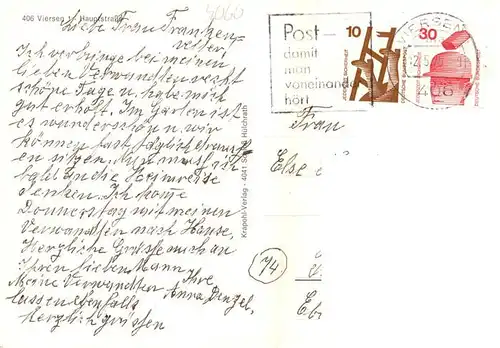 406 Viersen 1 - Hauptstraße
4060
Liebe Frau Franken-
Ich verbringe bei meinen
lieben Verwandten recht
schöne Tage u. habe mich
gut erholt. Im Garten ist
es wunderschön u. wir
können fast täglich drauss
en sitzen. Nun muss ich
bald an die Heimreise
denken. Ich komme
Donnerstag mit meinen
Verwandten nach Hause.
Herzliche Grüsse auch an
Ihren lieben Mann
Ihre
Anna Denzel,
Meine Verwandten
lassen ebenfalls
herzlich grüssen
Krapohl-Verlag - 4041 Schloß Hülchrath
Post-
damit
man
voneinander
hört
10
30
DEUTSCHE BUNDESPOST
DEUTSCHE BUNDESPOST
VIERSEN
406
Frau
Else
74